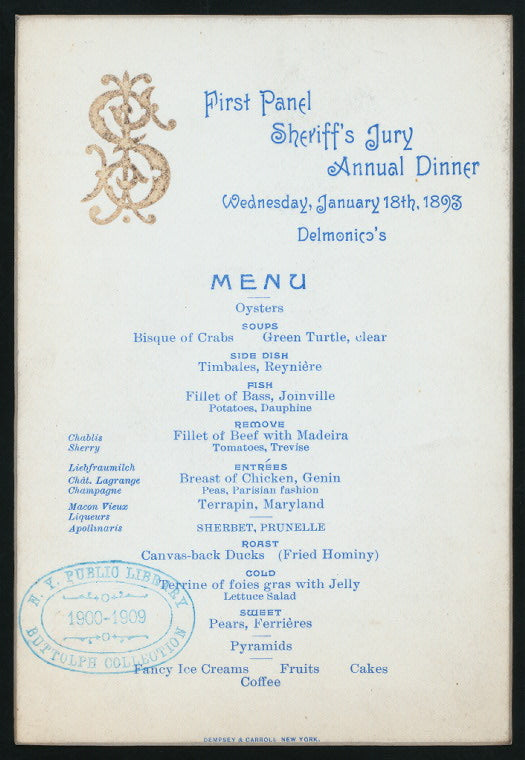 First Panel
Sheriff's Jury
Annual Dinner
Wednesday, January 18th, 1893
Delmonico's
MENU
Oysters
SOUPS
Bisque of Crabs Green Turtle, clear
SIDE DISH
Timbales, Reynière
FISH
Fillet of Bass, Joinville
Potatoes, Dauphine
REMOVE
Chablis Fillet of Beef with Madeira
Sherry Tomatoes, Trevise
Liebfraumilch ENTRÉES
Chât. Lagrange Breast of Chicken, Genin
Champagne Peas, Parisian fashion
Macon Vieux Terrapin, Maryland
Liqueurs
Apollinaris SHERBET, PRUNELLE
ROAST
Canvas-back Ducks (Fried Hominy)
COLD
Terrine of foies gras with Jelly
Lettuce Salad
SWEET
Pears, Ferrières
Pyramids
Fancy Ice Creams Fruits Cakes
Coffee
N. Y. PUBLIC LIBRARY
1900-1909
BUTTOLPH COLLECTION
DEMPSEY & CARROLL NEW YORK.